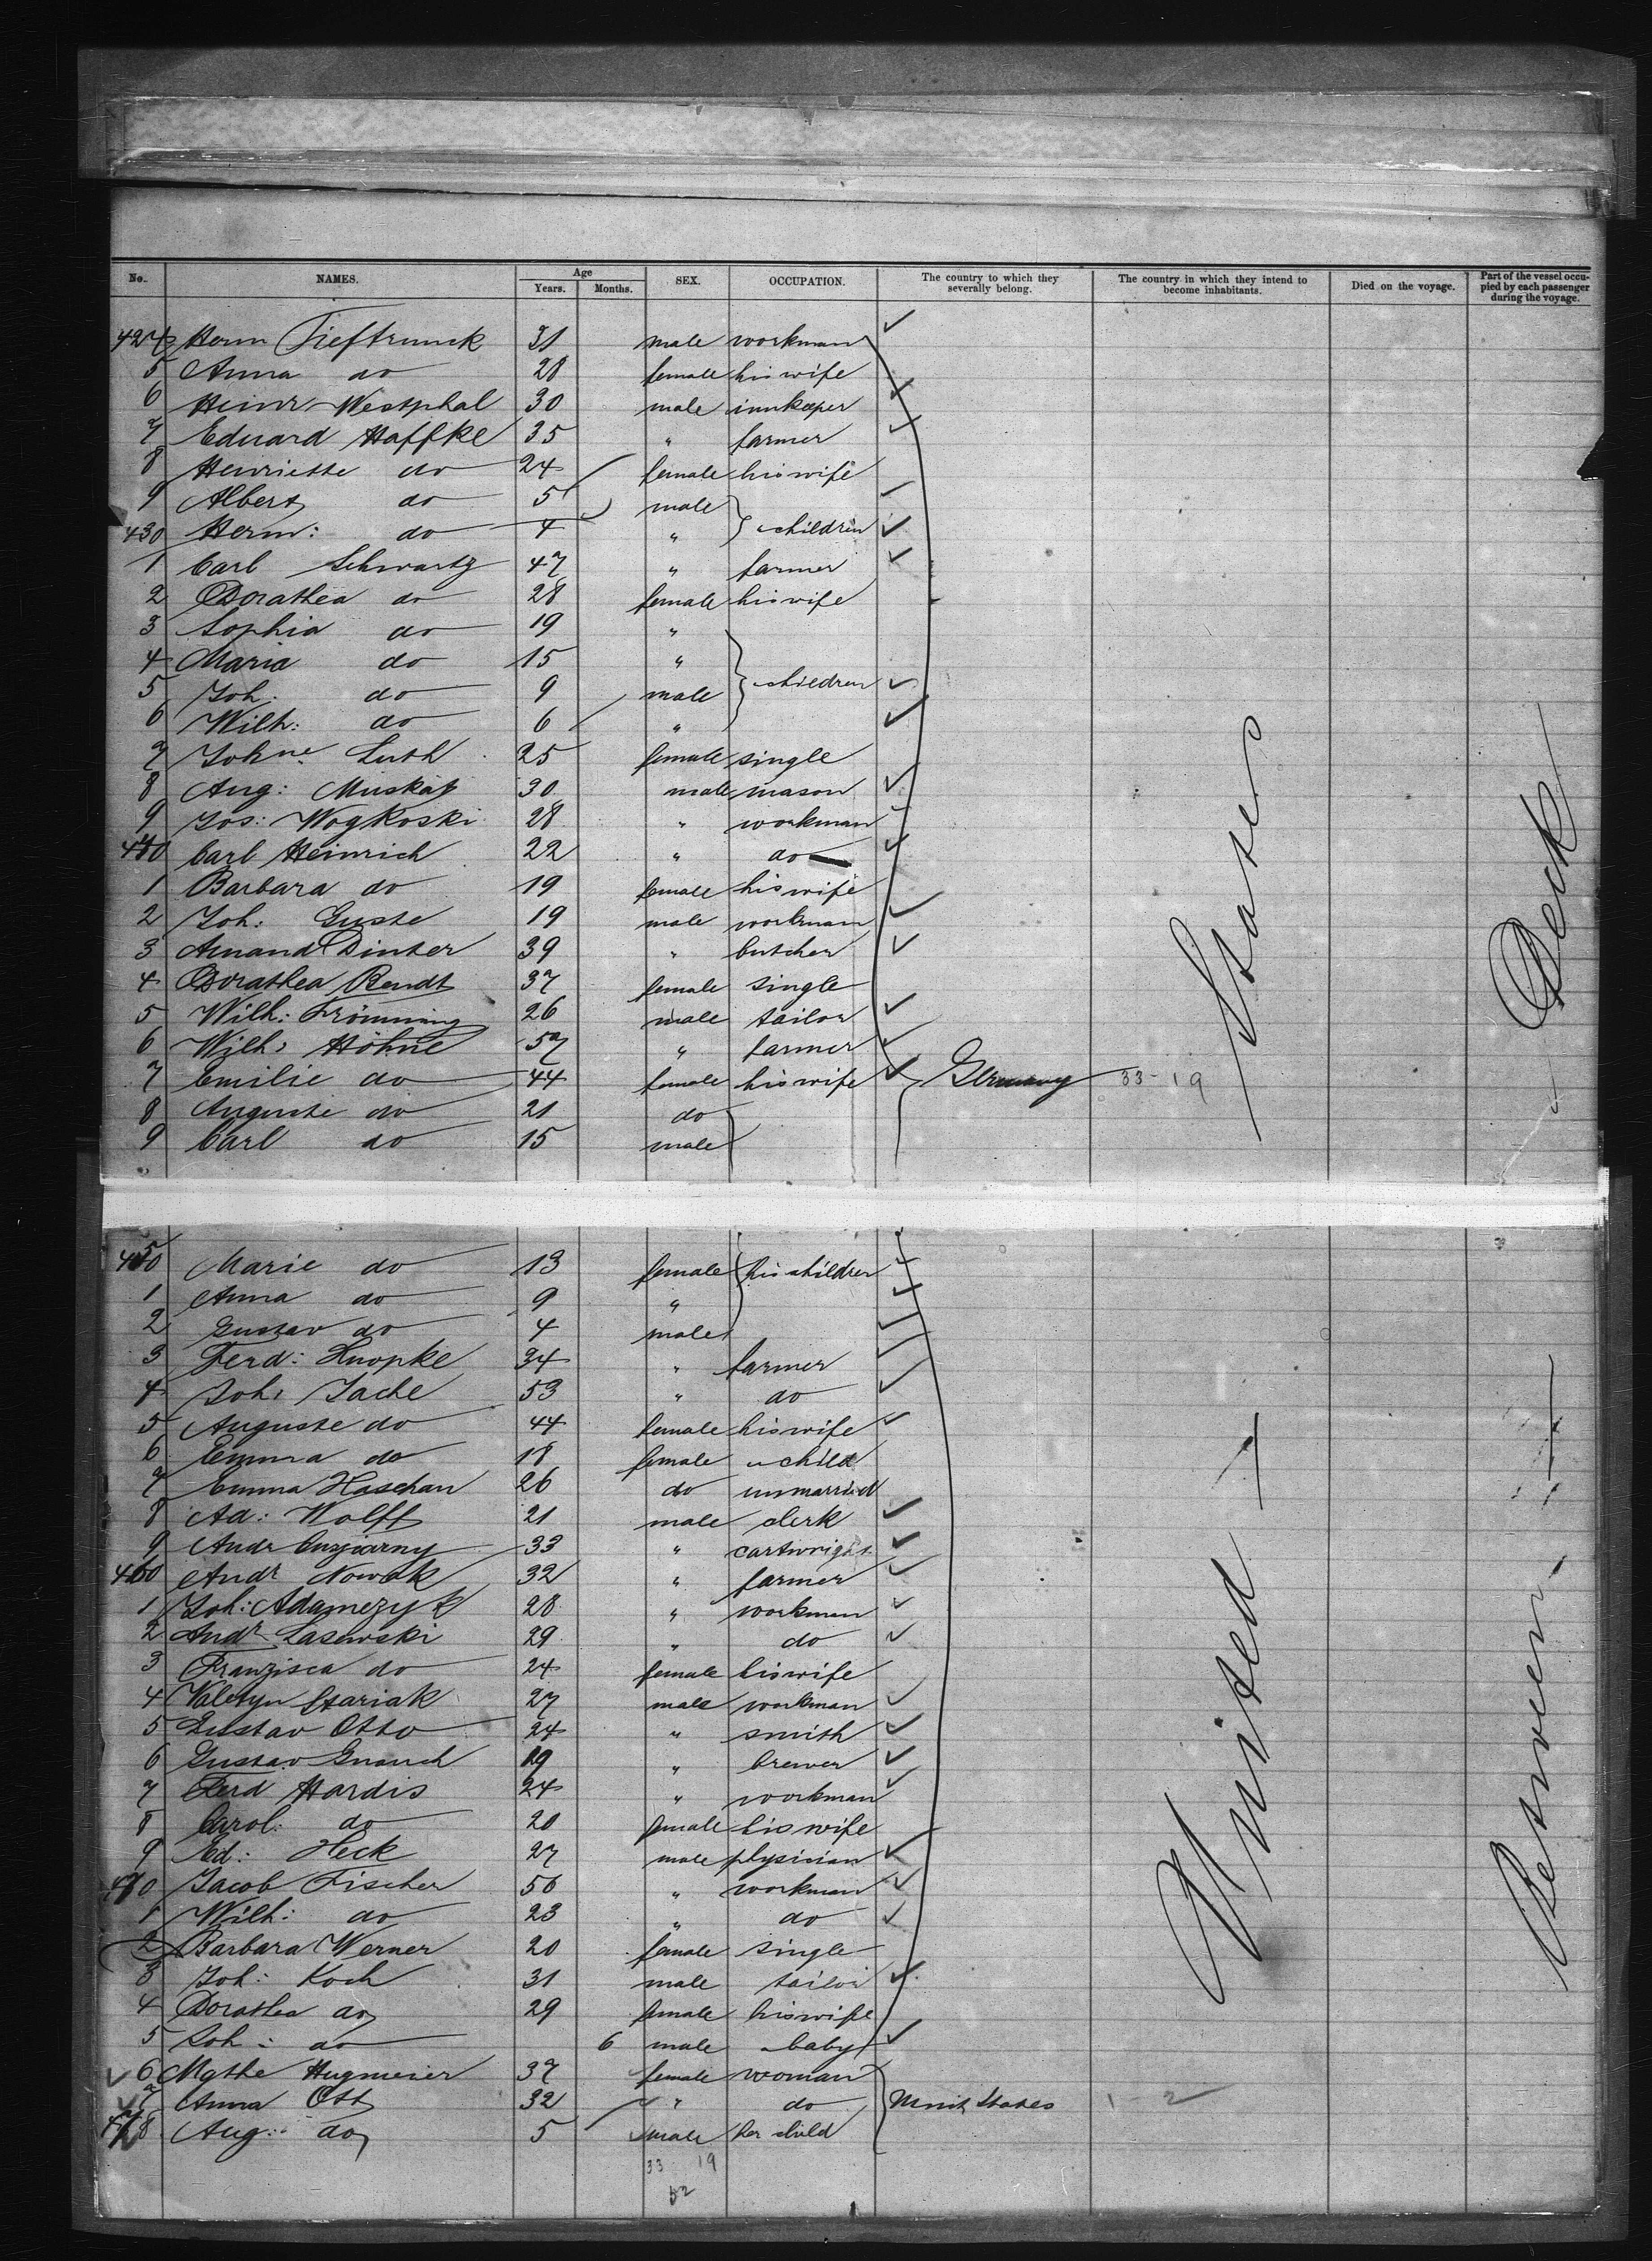 No. NAMES. Age Years. Months. SEX. OCCUPATION. The country to which they severally belong. The country in which they intend to become inhabitants. Died on the voyage. Part of the vessel occupied by each passenger during the voyage.
424 Herm Tieftrunck 31 male workman
5 Anna do 28 female his wife
6 Heinr Westphal 30 male innkeeper
7 Eduard Haffke 35 " farmer
8 Henriette do 24 female his wife
9 Albert do 5 male
430 Herm: do 4 " children
1 Carl Schwartz 47 " farmer
2 Dorathea do 28 female his wife
3 Sophia do 19 "
4 Maria do 15 "
5 Joh: do 9 male children
6 Wilh: do 6 "
7 Johne Luth 25 female single
8 Aug: Muskat 30 male mason
9 Jos: Wogkoski 28 " workman
440 Carl Heinrich 22 " do
1 Barbara do 19 female his wife
2 Joh: Guste 19 male workman
3 Amand Dinter 39 " butcher
4 Dorathea Bendt 37 female single
5 Wilh: Frömming 26 male tailor
6 Wilh: Höhne 57 " farmer
7 Emilie do 44 female his wife Germany 33-19
8 Auguste do 21 do
9 Carl do 15 male
450 Marie do 13 female his children
1 Anna do 9 "
2 Gustav do 4 male
3 Ferd: Knopke 34 " farmer
4 Joh: Jache 53 " do
5 Auguste do 44 female his wife
6 Emma do 18 female " child
7 Emma Haschan 26 do unmarried
8 Ad: Wolff 21 male clerk
9 Andr 33 " cartwright
460 Andr Nowak 32 " farmer
1 Joh: Adamezyk 28 " workman
2 Andr Lasewski 29 " do
3 Franzisca do 24 female his wife
4 Valetyn 27 male workman
5 Gustav Otto 24 " smith
6 Gustav Gnauch 19 " brewer
7 Ferd Hardis 24 " workman
8 Carol: do 20 female his wife
9 Ed: Heck 27 male physician
470 Jacob Fischer 56 " workman
1 Wilh: do 23 " do
2 Barbara Werner 20 female single
3 Joh: Koch 31 male tailor
4 Dorathea do 29 female his wife
5 Joh: do 6 male baby
6 Mathe Hugmeier 37 female woman
7 Anna Ott 32 " do Unit States 1-2
478 Aug: do 5 male her child
33 19
52
United States
Between Deck